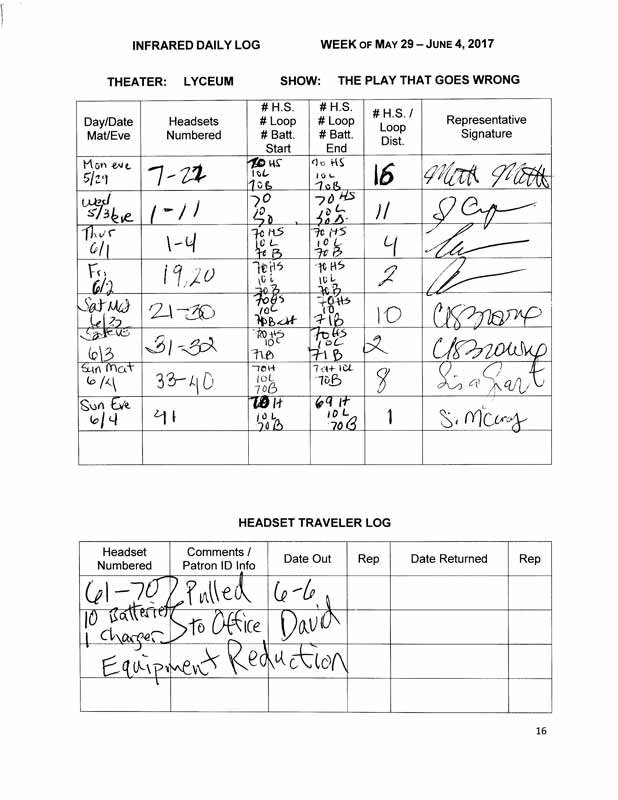 INFRARED DAILY LOG WEEK OF MAY 29 – JUNE 4, 2017
THEATER: LYCEUM SHOW: THE PLAY THAT GOES WRONG
Day/Date Mat/Eve Headsets Numbered # H.S. # Loop # Batt. Start # H.S. # Loop # Batt. End # H.S. / Loop Dist. Representative Signature
Mon eve 5/29 7-22 70 HS 10L 70B 70 HS 10L 70B 16
Wed 5/31 eve 1-11 70 10 70 HS 10L 11
Thur 6/1 1-4 70 HS 10L 70B 70 HS 10L 70B 4
Fri 6/2 19,20 70HS 10L 70B 70 HS 10L 70B 2
Sat Mat 6/3 21-30 70HS 10L 70HS 10L 71B 10 CJSBrowne
Sat eve 6/3 31-32 70HS 10L 71B 70HS 10L 71B 2 CJSBrowne
Sun Mat 6/4 33-40 70H 10L 70B 70H 10L 70B 8
Sun Eve 6/4 41 70 H 10L 70B 69 H 10L 70B 1
HEADSET TRAVELER LOG
Headset Numbered Comments / Patron ID Info Date Out Rep Date Returned Rep
61-70 Pulled 6-6
10 Batteries
1 Charger to Office David
Equipment Reduction
16